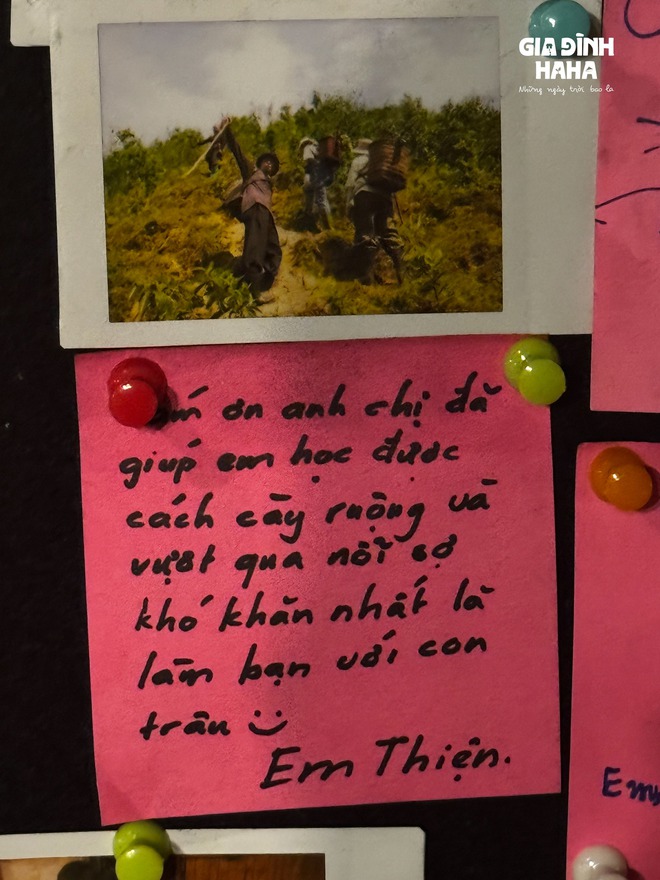 GIA ĐÌNH
HAHA
Những ngày trời bao la
ơn anh chị đã
giúp em học được
cách cày ruộng và
vượt qua nỗi sợ
khó khăn nhất là
làm bạn với con
trâu :)
Em Thiện.
Em